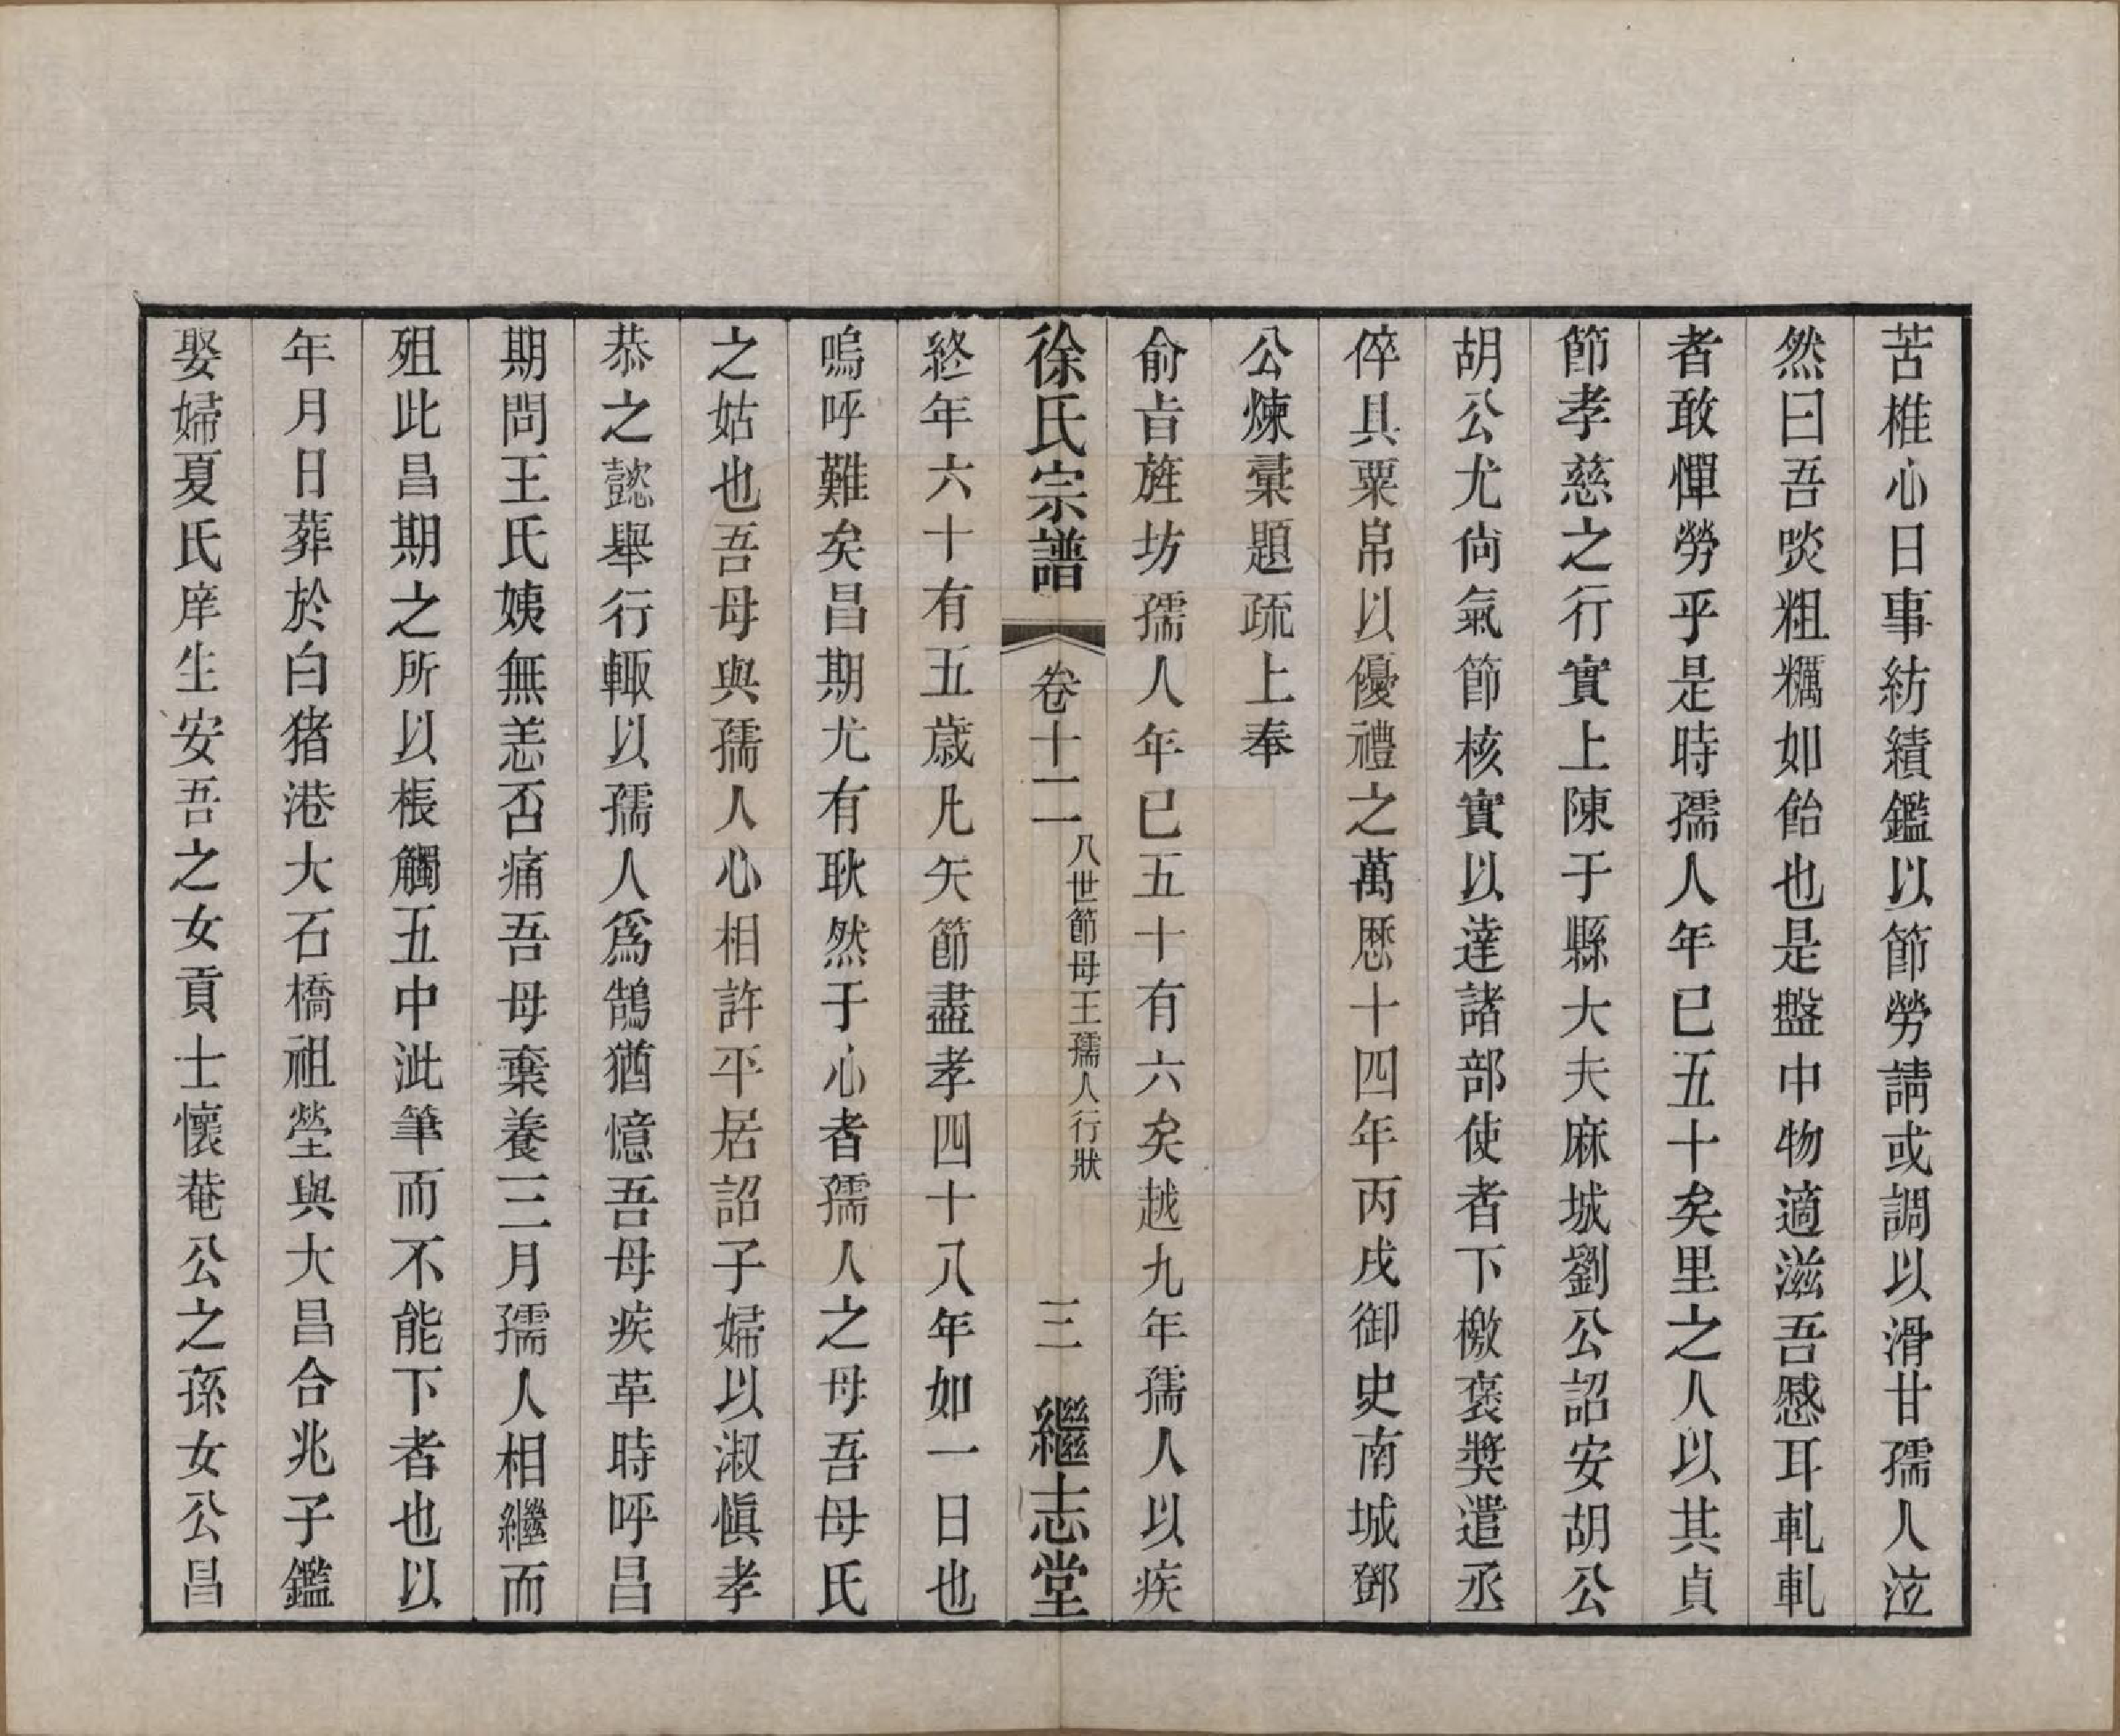 苦椎心日事紡績鑑以節勞請或調以滑甘孺人泣
然曰吾啖粗糲如飴也是盤中物適滋吾慼耳軋軋
者敢憚勞乎是時孺人年已五十矣里之人以其貞
節孝慈之行實上陳于縣大夫麻城劉公詔安胡公
胡公尤尙氣節核實以達諸部使者下檄褒獎遣丞
倅具粟帛以優禮之萬厯十四年丙戌御史南城鄧
公煉彙題疏上奉
俞旨旌坊孺人年已五十有六矣越九年孺人以疾
徐氏宗譜
卷十二
八世節母王孺人行狀
三
繼志堂
終年六十有五歲凡矢節盡孝四十八年如一日也
嗚呼難矣昌期尤有耿然于心者孺人之母吾母氏
之姑也吾母與孺人心相許平居詔子婦以淑愼孝
恭之懿舉行輒以孺人爲鵠猶憶吾母疾革時呼昌
期問王氏姨無恙否痛吾母棄養三月孺人相繼而
殂此昌期之所以棖觸五中泚筆而不能下者也以
年月日葬於白豬港大石橋祖塋與大昌合兆子鑑
娶婦夏氏庠生安吾之女貢士懷菴公之孫女公昌